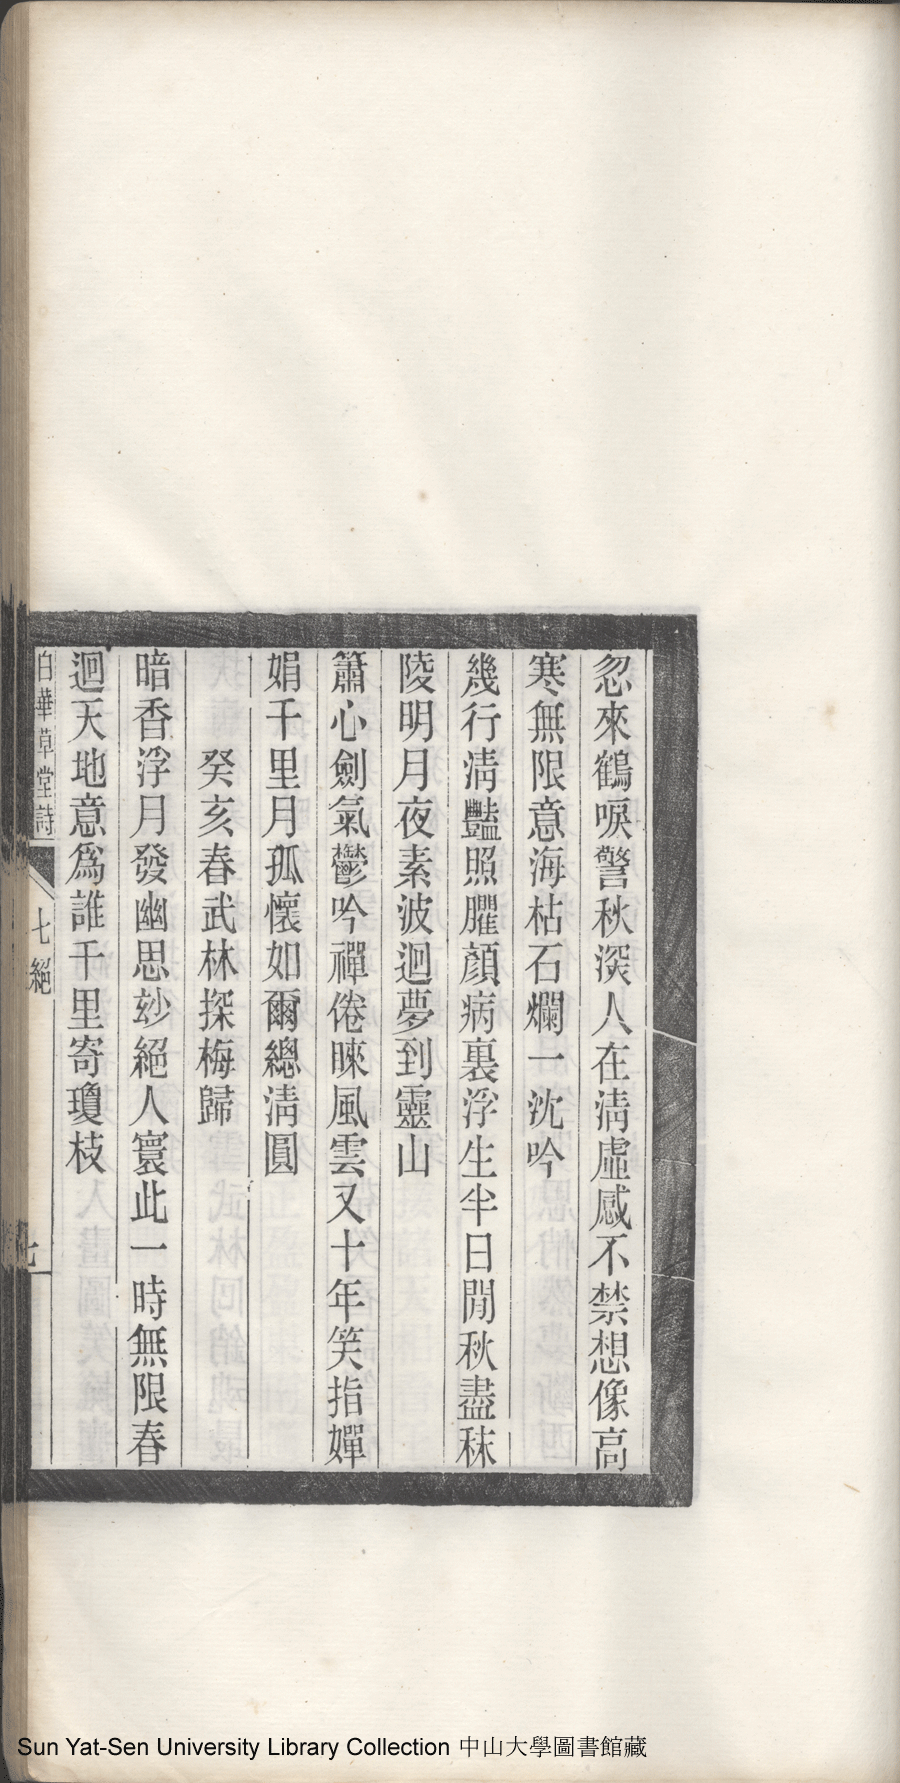 忽來鶴唳警秋深人在淸虛感不禁想像高
寒無限意海枯石爛一沈吟
幾行淸豔照臞顏病裏浮生半日閒秋盡秣
陵明月夜素波迴夢到靈山
簫心劍氣鬱吟禪倦睞風雲又十年笑指嬋
娟千里月孤懷如爾總淸圓
癸亥春武林探梅歸
暗香浮月發幽思玅絕人寰此一時無限春
迴天地意爲誰千里寄瓊枝
白華草堂詩
七絕
七
Sun Yat-Sen University Library Collection 中山大學圖書館藏